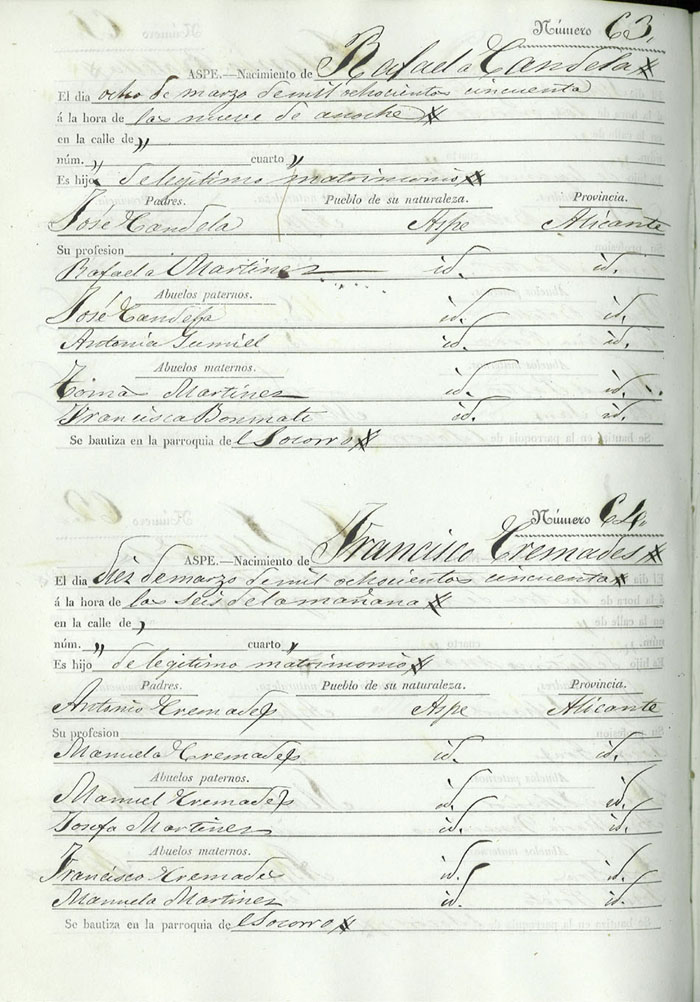 Número 63.
ASPE.—Nacimiento de Rafaela Candela
El dia ocho de marzo de mil ochocientos cincuenta
á la hora de las nueve de anoche
en la calle de „
núm. „ cuarto „
Es hijo de legitimo matrimonio
Padres. Pueblo de su naturaleza. Provincia.
José Candela Aspe Alicante
Su profesion
Rafaela Martinez id. id.
Abuelos paternos.
José Candela id. id.
Antonia Gumiel id. id.
Abuelos maternos.
Tomás Martinez id. id.
Francisca Bonmati id. id.
Se bautiza en la parroquia del Socorro
Número 64.
ASPE.—Nacimiento de Francisco Cremades
El dia diez de marzo de mil ochocientos cincuenta
á la hora de las seis de la mañana
en la calle de „
núm. „ cuarto „
Es hijo de legitimo matrimonio
Padres. Pueblo de su naturaleza. Provincia.
Antonio Cremades Aspe Alicante
Su profesion
Manuela Cremades id. id.
Abuelos paternos.
Manuel Cremades id. id.
Josefa Martinez id. id.
Abuelos maternos.
Francisco Cremades id. id.
Manuela Martinez id. id.
Se bautiza en la parroquia del Socorro